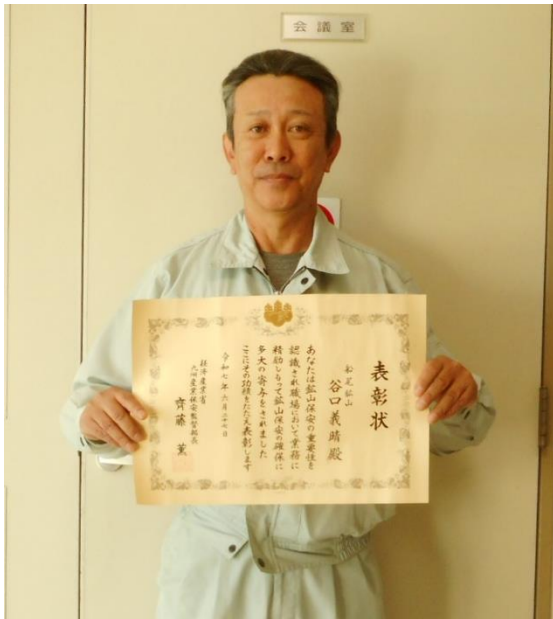 会議室
表彰状
松尾鉱山
谷口義晴殿
あなたは鉱山保安の重要性を
認識され職場において業務に
精励しもって鉱山保安の確保に
多大の寄与をされました
ここにその功績をたたえ表彰します
令和七年六月二十七日
経済産業省
九州産業保安監督部長
齊藤薫